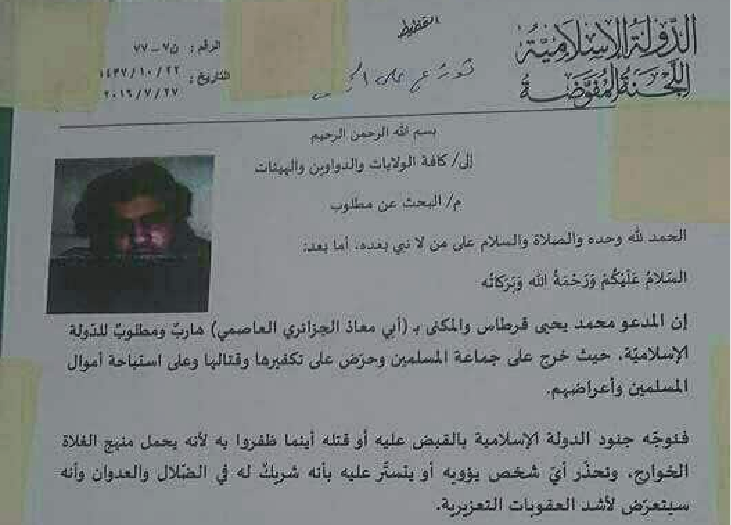 الدولة الإسلامية
اللجنة المفوضة
الرقم: ن٧-٧٧
التاريخ: ١٤٣٧/١٠/٢٢
٢٠١٦/٧/٢٧
بسم الله الرحمن الرحيم
إلى/ كافة الولايات والدواوين والهيئات
م/ البحث عن مطلوب
الحمد لله وحده والصلاة والسلام على من لا نبي بعده، أما بعد:
السَّلامُ عَلَيْكُمْ وَرَحْمَةُ اللهِ وَبَرَكَاتُه
إن المدعو محمد يحيى قرطاس والمكنى بـ (أبي معاذ الجزائري العاصمي) هاربٌ ومطلوبٌ للدّولة
الإسلاميّة، حيث خرج على جماعة المسلمين وحرّض على تكفيرها وقتالها وعلى استباحة أموال
المسلمين وأعراضهم.
فنوجّه جنود الدولة الإسلامية بالقبض عليه أو قتله أينما ظفروا به لأنه يحمل منهج الغلاة
الخوارج، ونحذّر أيّ شخص يؤويه أو يتستّر عليه بأنه شريكٌ له في الضّلال والعدوان وأنه
سيتعرّض لأشد العقوبات التعزيرية.